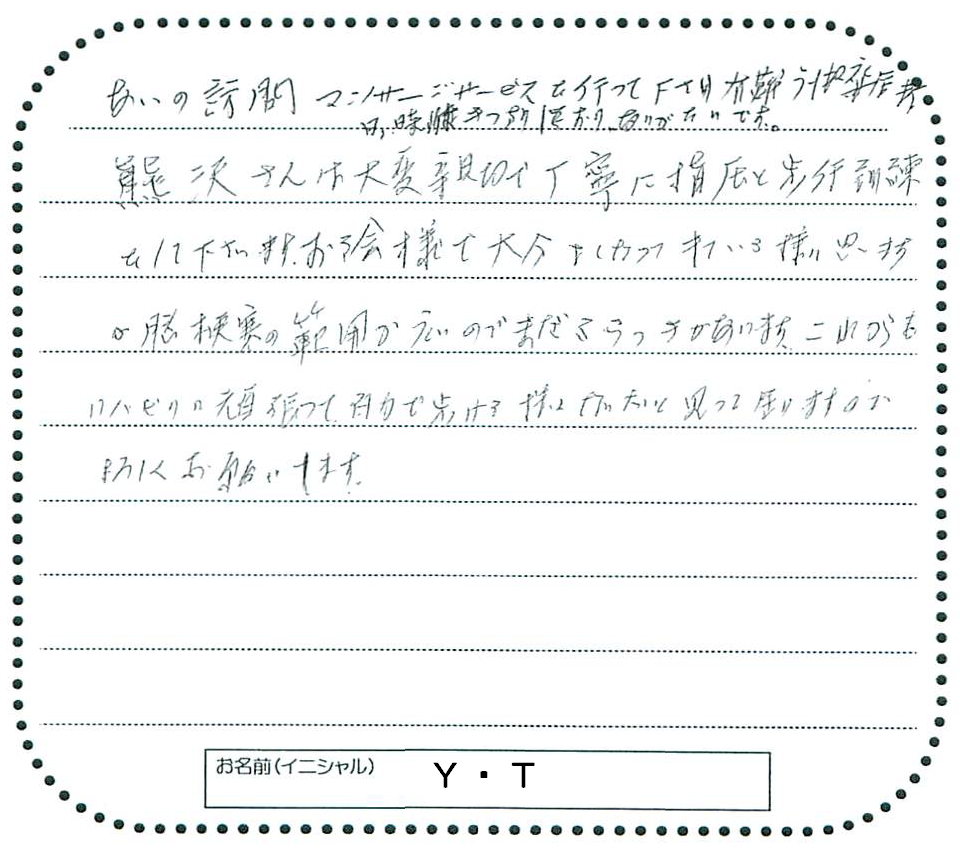 あいの訪問マッサージサービスを行って下さり有難うございます
時間きっちり しており、ありがたいです。
さんは大変親切で丁寧に指圧と歩行訓練
をして下さいます。お 様で大分よくなって来ている様に思います
が脳梗塞の範囲が 広いのでまだ ふらつきがあります。これからも
リハビリに頑張って、自力で歩ける様になりたいと思って居りますので
よろしくお願いします。
お名前(イニシャル) Y・T